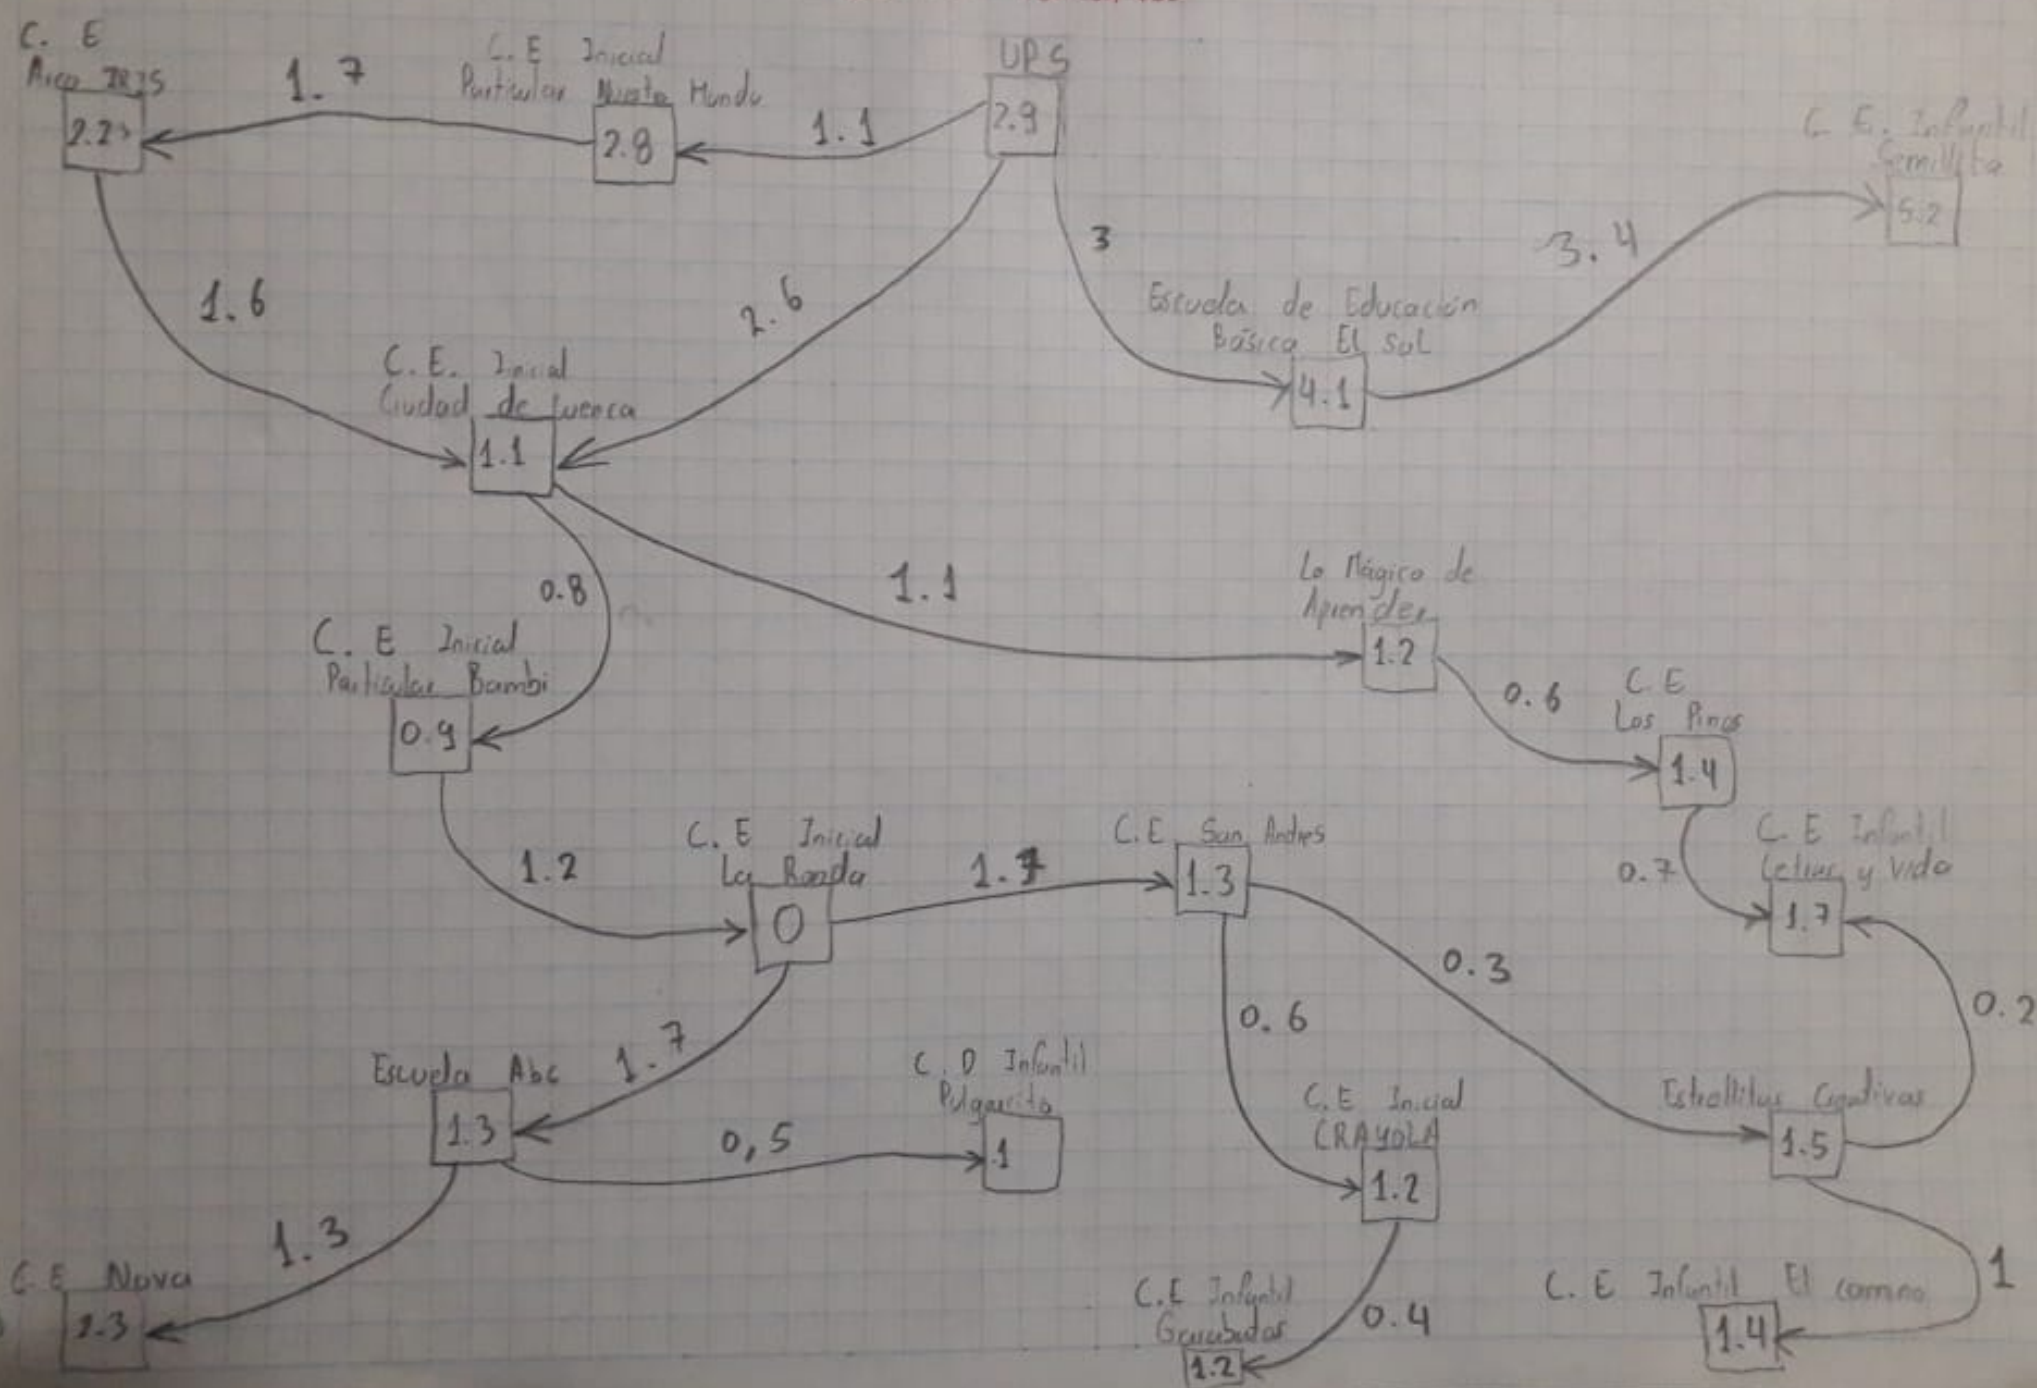 C. E
Arco IRIS
2.2
1.7
C. E Inicial
Particular Mundo
2.8
1.1
UPS
2.9
C. E. Infantil
Semillita
5.2
1.6
2.6
3
3.4
Escuela de Educación
Básica El Sol
4.1
C. E. Inicial
Ciudad de Cuenca
1.1
0.8
1.1
Lo Mágico de
Aprender
1.2
C. E Inicial
Particular Bambi
0.9
0.6
C. E
Los Pinos
1.4
1.2
C. E Inicial
La Ronda
0
C. E San Andres
1.3
0.7
C. E Infantil
y Vida
1.7
0.3
0.2
1.7
0.6
Escuela Abc
1.3
0,5
C. D Infantil
Pulgarcito
1
C. E Inicial
CRAYOLA
1.2
Estrellitas
1.5
1.3
C. E Nova
2.3
C. E Infantil
1.2
0.4
C. E Infantil El camino
1.4
1